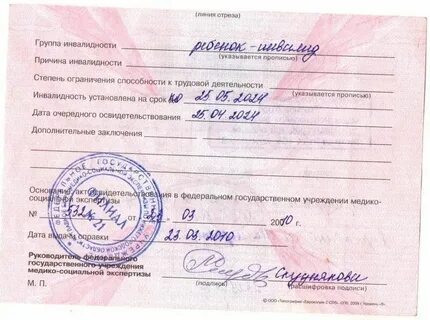 (линия отреза)
Группа инвалидности ребенок-инвалид
(указывается прописью)
Причина инвалидности
(указывается прописью)
Степень ограничения способности к трудовой деятельности
(указывается прописью)
Инвалидность установлена на срок до 25.05.2024
Дата очередного освидетельствования 25.04.2024
Дополнительные заключения
Основание: акт освидетельствования в федеральном государственном учреждении медико-
социальной экспертизы
№ 532 от 03 2010
Дата выдачи справки 23.03.2010
Руководитель федерального
государственного учреждения
медико-социальной экспертизы
(подпись) (расшифровка подписи)
М. П.
ФИЛИАЛ
№ 21